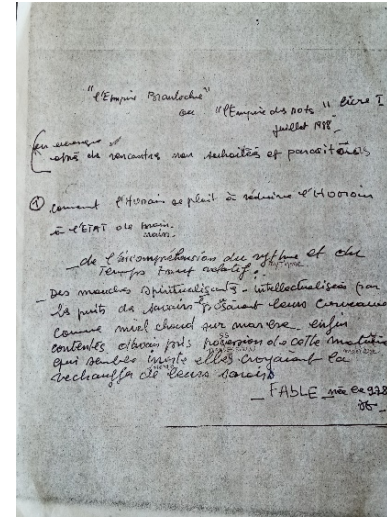 "l'Empire
ou "l'Empire des mots" livre I
juillet 1988
(en
de rencontres non souhaitées et parasitaires
① comment l'Humain se plait à réduire l'Humain
à l'ETAT de main.
_ de l'incompréhension du rythme et du
Temps tout relatif.
_ Des mouches spiritualisants - intellectualisées par
les puits de savoirs posant leurs cerveaux
comme miel chaud sur marbre enfin
contentes d'avoir pris possession de cette matière
qui semble inerte elles croyaient la
réchauffer de leurs savoirs
_ FABLE _ née le 9.7.88